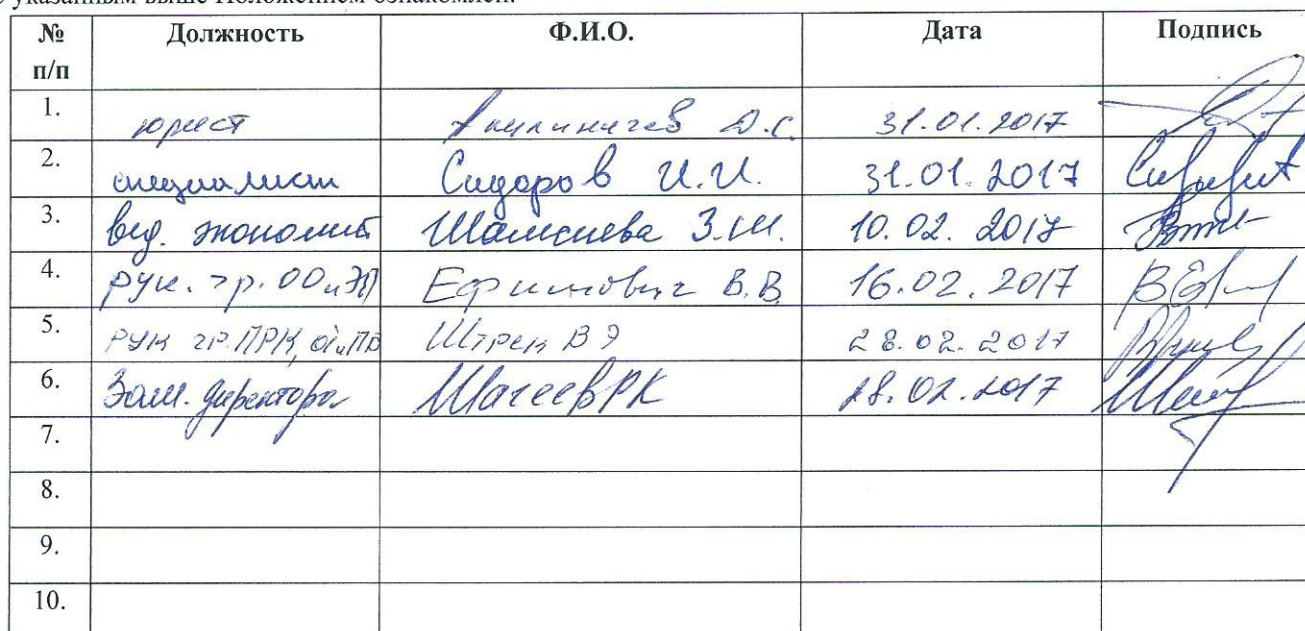 указанным выше Положением ознакомлен:
№ п/п Должность Ф.И.О. Дата Подпись
1. юрист Акулиничев Д.С. 31.01.2017
2. специалист Сидоров И.И. 31.01.2017
3. вед. экономист Шамсиева З.Ш. 10.02.2017
4. рук. гр. ОО и ЭП Ефимович В.В. 16.02.2017
5. рук гр. ПРК, Штрек В Э 28.02.2017
6. Зам. директора Шагеев РК 28.02.2017
7.
8.
9.
10.